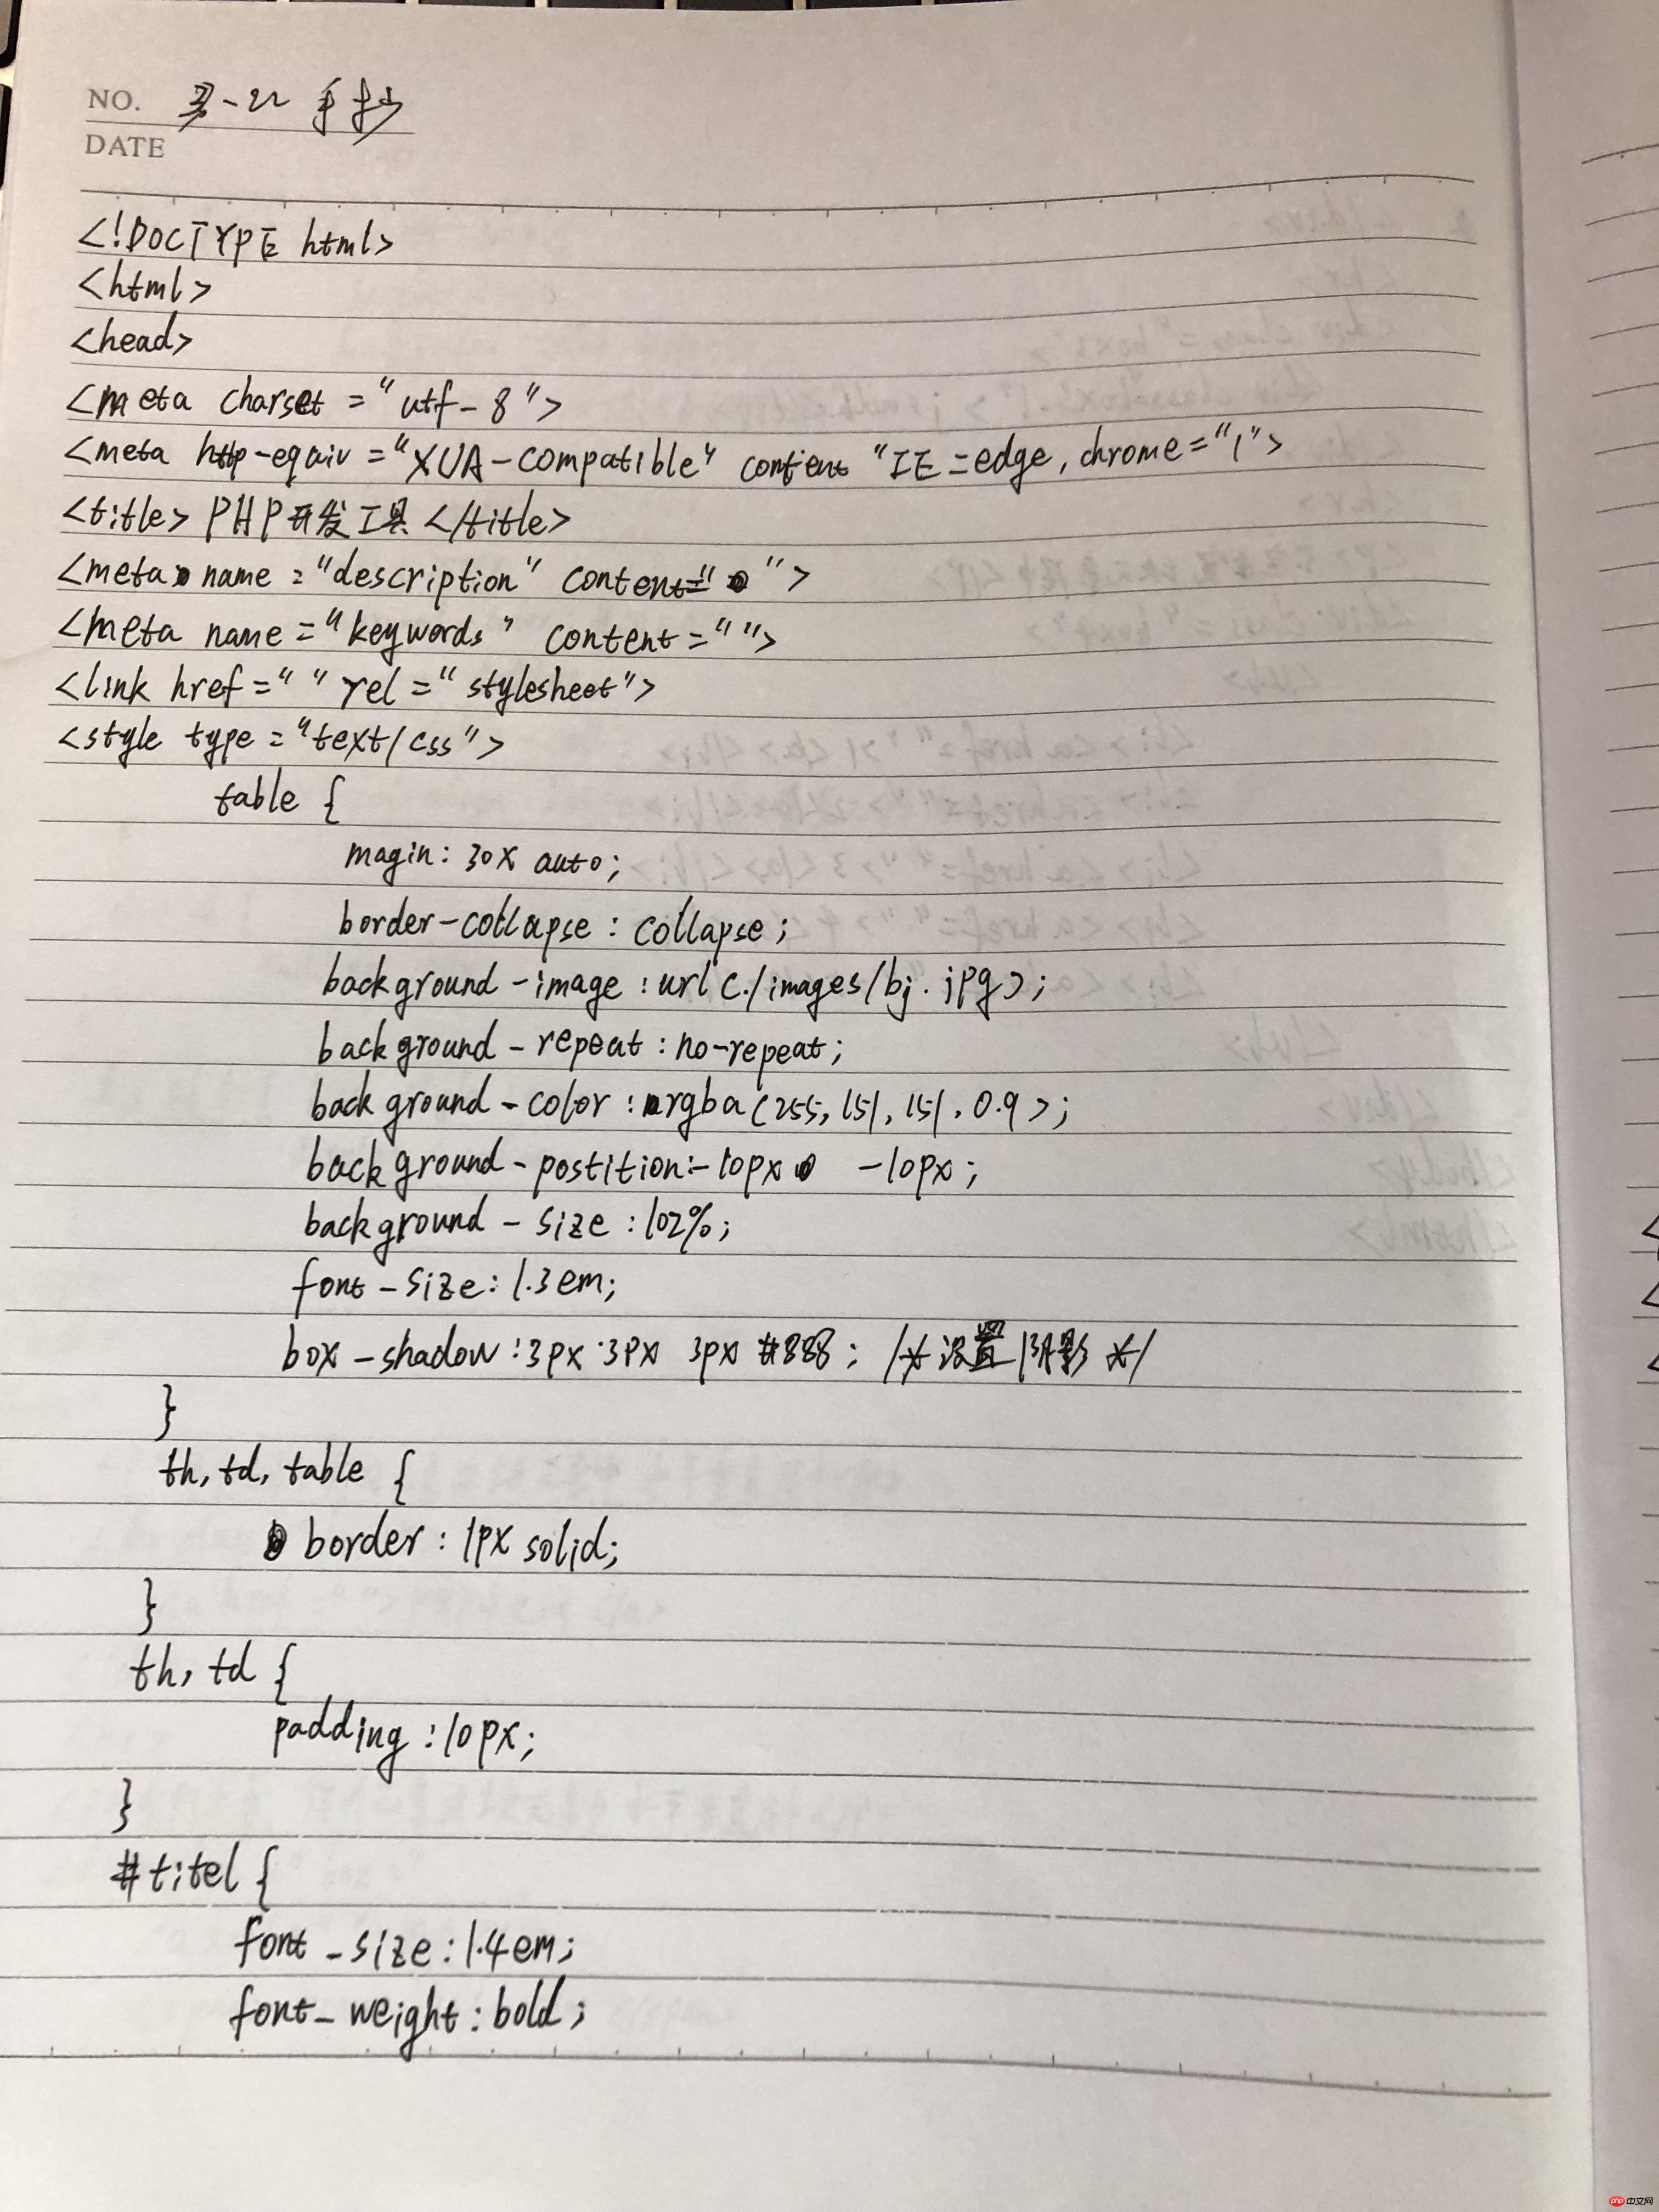 NO. 3-22 手抄
DATE
<!DOCTYPE html>
<html>
<head>
<meta charset = "utf-8">
<meta http-equiv = "XUA-compatible" content "IE=edge, chrome="1">
<title> PHP开发工具 </title>
<meta name = "description" content=" ">
<meta name = "keywords" content = "">
<link href = " " rel = "stylesheet">
<style type = "text/css">
table {
magin: 30X auto;
border-collapse : collapse;
background-image : url (./images/bj.jpg);
background-repeat : no-repeat;
background-color : rgba(255, 151, 151, 0.9);
background-postition:-10px -10px;
background-size : 102%;
font-size: 1.3em;
box-shadow : 3px 3px 3px #888; /* 设置阴影 */
}
th, td, table {
border : 1px solid;
}
th, td {
padding : 10px;
}
#titel {
font-size : 1.4em;
font-weight : bold;
php中文网